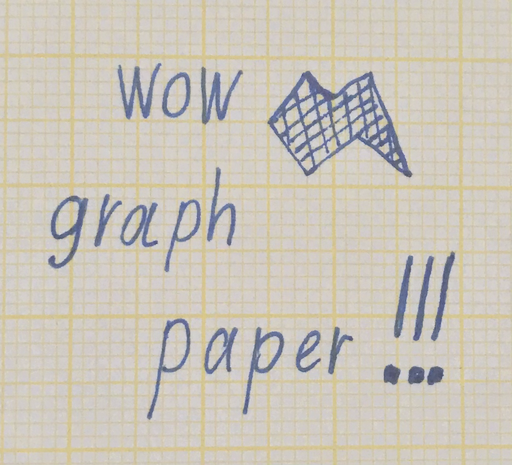 wow
graph
paper !!!